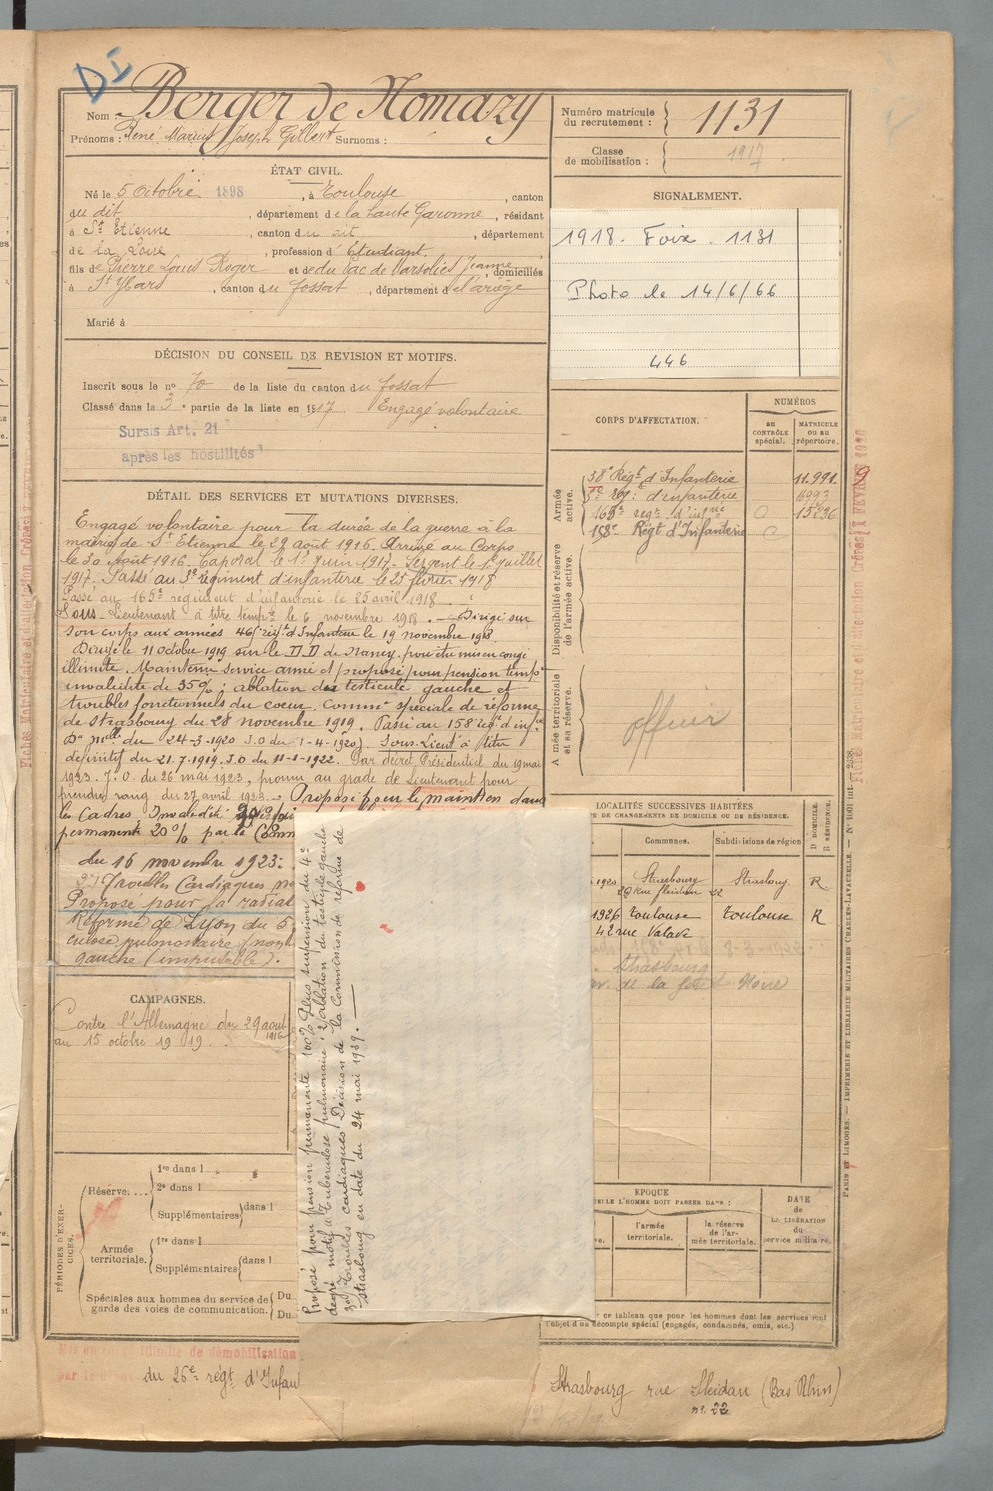 DI
Nom : Berger de Nomazy
Prénoms : René Marius Joseph Gilbert Surnoms :
Numéro matricule du recrutement : 1131
Classe de mobilisation : 1917
ÉTAT CIVIL.
Né le 5 Octobre 1898, à Toulouse, canton
du dit, département de la haute Garonne, résidant
à St Etienne, canton du dit, département
de la Loire, profession d'Etudiant.
fils de Pierre Louis Roger et de du Pac de Marsoliès Jeanne, domiciliés
à St Ybars, canton du fossat, département de l'ariège
Marié à
SIGNALEMENT.
1918. Foix. 1131
Photo le 14/6/66
446
DÉCISION DU CONSEIL DE REVISION ET MOTIFS.
Inscrit sous le no 70 de la liste du canton du fossat
Classé dans la 3e partie de la liste en 1917 Engagé volontaire
Sursis Art. 21
après les hostilités
DÉTAIL DES SERVICES ET MUTATIONS DIVERSES.
Engagé volontaire pour la durée de la guerre à la
mairie de St Etienne le 29 août 1916. Arrivé au Corps
le 30 Août 1916. Caporal le 1er Juin 1917. Sergent le 1er Juillet
1917. Passé au 3e régiment d'infanterie le 25 février 1918
Passé au 165e régiment d'infanterie le 25 avril 1918
Sous-Lieutenant à titre tempre le 6 novembre 1918. Dirigé sur
son corps aux armées 46e régt d'Infanterie le 19 novembre 1918
Dirigé le 11 octobre 1919 sur le D.D de Nancy pour être mis en congé
illimité. Maintenu service armé et proposé pour pension tempre
invalidité de 35%, ablation du testicule gauche et
troubles fonctionnels du coeur. Common spéciale de réforme
de Strasbourg du 28 novembre 1919. Passé au 158e régt d'infie
Don mlle du 24-3-1920 J.O du 1-4-1920). Sous-Lieut à titre
définitif du 21.7.1919. J.O du 11-1-1922. Par décret Présidentiel du 19 mai
1923. J.O. du 26 mai 1923, promu au grade de Lieutenant pour
prendre rang du 27 avril 1923. Proposé pour le maintien dans
les Cadres, Invalidité
permanente 20% par la Comm
du 16 novembre 1923:
Troubles Cardiaques
Proposé pour la radiat
Réforme de Lyon du 5
culose pulmonaire (
gauche (imputable).
CORPS D'AFFECTATION.
NUMÉROS
au CONTRÔLE spécial.
MATRICULE ou au répertoire.
Armée active.
38e Régt d'Infanterie 11.991
3e rég: d'infanterie 6993
165e régt d'infrie 15236
158e Régt d'Infanterie
Disponibilité et réserve de l'armée active.
Armée territoriale et sa réserve.
officier
LOCALITÉS SUCCESSIVES HABITÉES
TE DE CHANGEMENTS DE DOMICILE OU DE RÉSIDENCE.
Communes. Subdivisions de région
D DOMICILE R RÉSIDENCE.
1920 Strasbourg Strasbourg. R
rue Sleidan 22
1926 Toulouse Toulouse R
42 rue Valade
Strasbourg
de la
CAMPAGNES.
Contre l'Allemagne du 29 août 1916
au 15 octobre 1919.
Proposé pour pension permanente 100% plus surpension du 4e
degré motif: Tuberculose pulmonaire 2) ablation du testicule gauche
3) Troubles cardiaques Décision de la Commission de réforme de
Strasbourg en date du 24 mai 1939.
PÉRIODES D'EXERCICES.
Réserve....
1re dans l
2e dans l
Supplémentaires dans l
Armée territoriale.
1re dans l
Supplémentaires dans l
Spéciales aux hommes du service de garde des voies de communication. Du Du
EPOQUE
ELLE L'HOMME DOIT PASSER DANS :
l'armée territoriale.
la réserve de l'armée territoriale.
DATE de LA LIBÉRATION du service militaire.
r ce tableau que pour les hommes dont les services sont
l'objet d'un décompte spécial (engagés, condamnés, omis, etc.)
Mis en congé illimité de démobilisation
par le dépôt du 26e régt d'Infan
Strasbourg rue Sleidan (Bas Rhin)
no. 22
PARIS ET LIMOGES. — IMPRIMERIE ET LIBRAIRIE MILITAIRES CHARLES-LAVAUZELLE. — No 1001